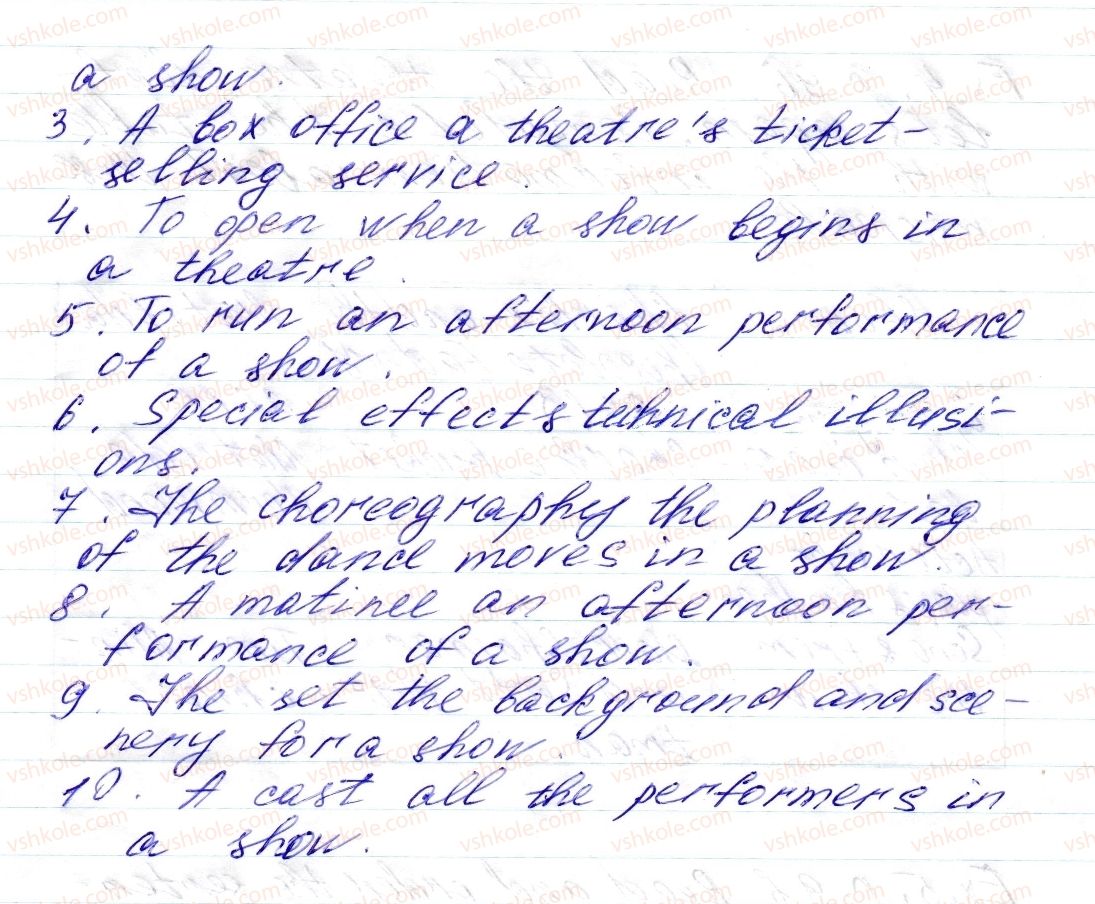 a show.
3. A box office a theatre's ticket-
selling service.
4. To open when a show begins in
a theatre.
5. To run an afternoon performance
of a show.
6. Special effects technical illusi-
ons.
7. The choreography the planning
of the dance moves in a show.
8. A matinee an afternoon per-
formance of a show.
9. The set the background and sce-
nery for a show.
10. A cast all the performers in
a show.
vshkole.com